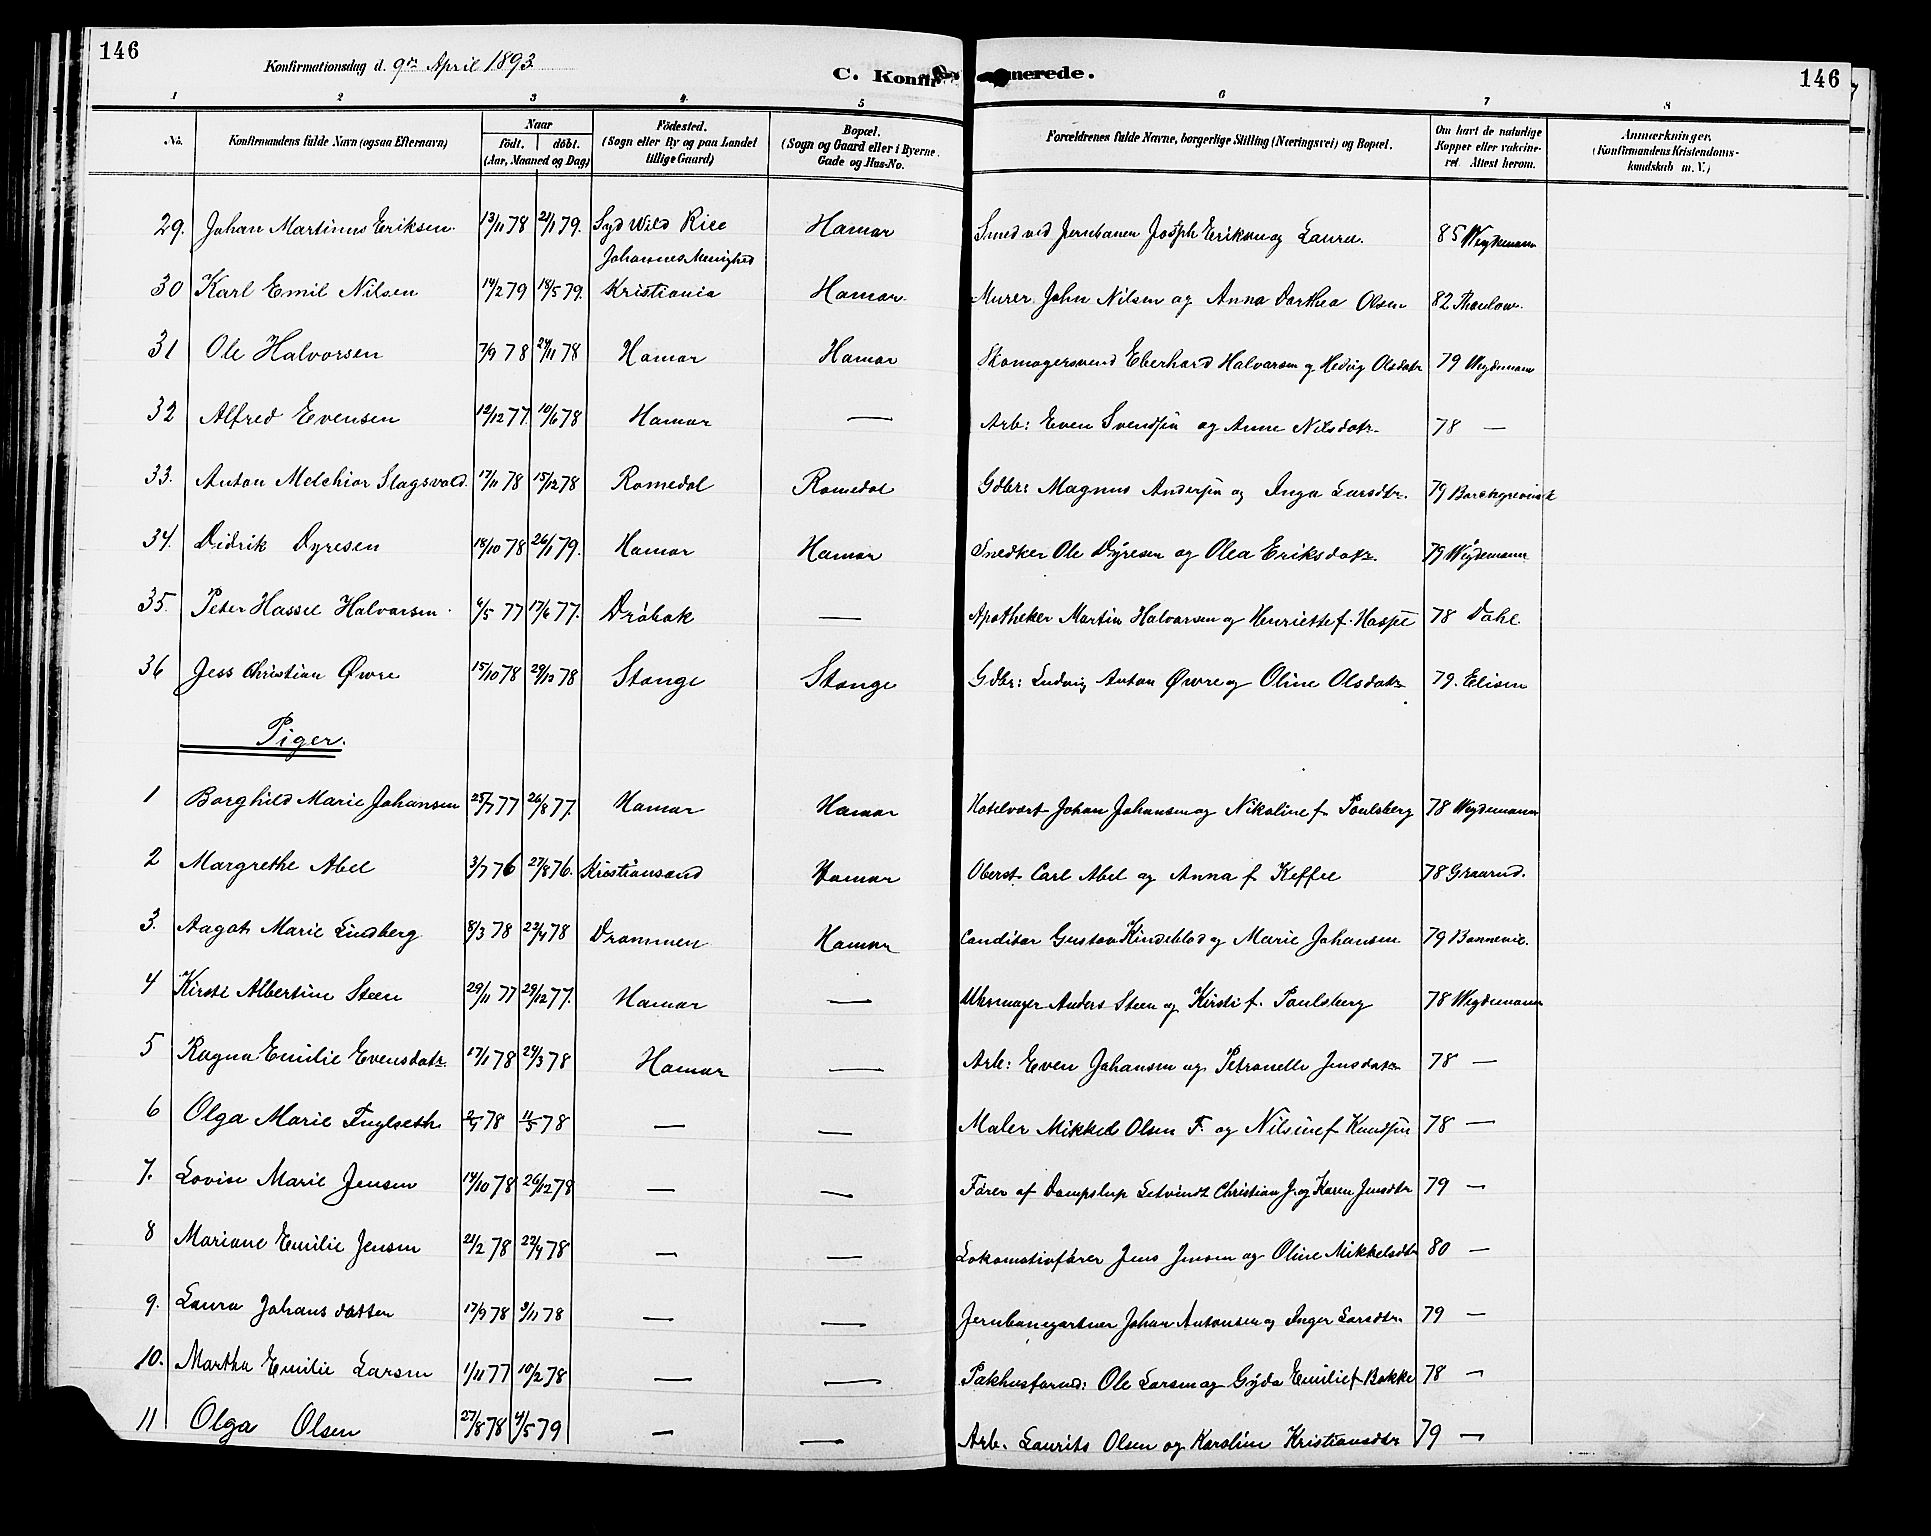 146
Konfirmationsdag d. 9de April 1893
C. Konfirmerede.
146
1 2 3 4 5 6 7 8
No. Konfirmandens fulde Navn (ogsaa Efternavn) Naar født. døbt. (Aar, Maaned og Dag) Fødested. (Sogn eller By og paa Landet tillige Gaard) Bopæl. (Sogn og Gaard eller i Byerne Gade og Hus-No. Forældrenes fulde Navne, borgerlige Stilling (Næringsvei) og Bopæl. Om havt de naturlige Kopper eller vakcineret. Attest herom. Anmærkninger. (Konfirmandens Kristendomskundskab m. V.)
29. Johan Martinus Eriksen 13/11 78 21/1 79. Syd Wild Rice Hamar Smed ved Jernbanen Joseph Eriksen og Laura. 85 Wegdemann
Johannes Menighed
30 Karl Emil Nilsen 14/2 79 18/5 79. Kristiania Hamar. Murer John Nilsen og Anna Dorthea Olsen 82 Thaulow.
31 Ole Halvorsen 7/9 78 24/11 78 Hamar Hamar Skomagersvend Eberhard Halvorsen og Hedvig Olsdatr 79 Wegdemann
32 Alfred Evensen 12/12 77. 10/6 78 Hamar — Arb: Even Svendsen og Anne Nilsdatr. 78 —
33. Anton Melchior Slagsvold. 17/11 78 15/12 78 Romedal Romedal Gdbr: Magnus Andersen og Inga Larsdtr. 79 Borchgrevink
34. Didrik Dyresen 18/10 78 26/1 79. Hamar Hamar Snedker Ole Dyresen og Olea Eriksdatr. 79 Wegdemann
35. Peter Hassel Halvorsen 6/5 77 17/6 77. Drøbak — Apotheker Martin Halvorsen og Henriette f. Hassel 78 Dahl
36 Jess Christian Øvre 15/10 78 29/12 78 Stange Stange Gdbr: Ludvig Anton Øvre og Oline Olsdatr 79. Elisen
Piger.
1 Borghild Marie Johansen 25/7 77 26/8 77. Hamar Hamar Hotelvært Johan Johansen og Nikoline f. Poulsberg 78 Wegdemann
2 Margrethe Abel 3/7 76 27/8 76. Kristiansand Hamar Oberst Carl Abel og Anna f. Keffel 78 Graarud.
3. Aagot Marie Lindberg 8/3 78 22/4 78 Drammen Hamar Conditor Gustav Kindeblod og Marie Johansen 79 Bonnevie.
4 Kirsti Albertine Steen 29/11 77 29/12 77. Hamar — Uhrmager Anders Steen og Kirsti f. Poulsberg 78 Wegdemann
5 Ragna Emilie Evensdatr. 17/1 78 24/3 78 Hamar — Arb: Even Johansen og Petronelle Jensdatr 78 —
6 Olga Marie Fuglseth 2/4 78 11/5 78 — — Maler Mikkel Olsen F. og Nilsine f. Knudsen 78 —
7. Lovise Marie Jensen 14/10 78 26/12 78 — — Fører af Dampslup Letvindt Christian J. og Karen Jensdtr 79 —
8 Mariane Emilie Jensen 21/2 78 22/4 78 — — Lokomotivfører Jens Jensen og Oline Mikkelsdtr 80 —
9. Laura Johansdatter 17/9 78 3/11 78 — — Jernbanegartner Johan Antonsen og Inger Larsdtr. 79 —
10. Martha Emilie Larsen 1/11 77 10/2 78 — — Pakhusformd: Ole Larsen og Gyda Emilie f. Bakke 78 —
11 Olga Olsen 27/8 78 4/5 79 — — Arb. Laurits Olsen og Karoline Kristiansdtr 79 —